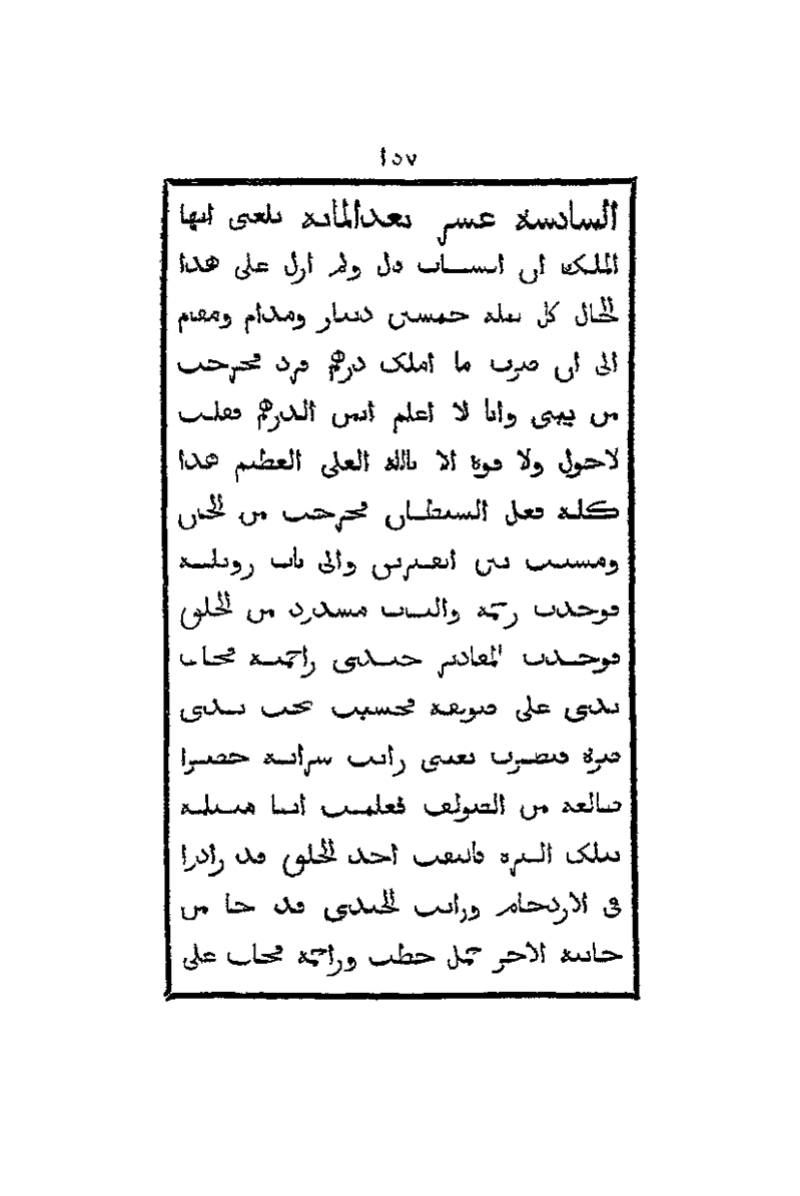 ١٥٧
السادسة عشر بعد المائة بلغنى ايها
الملك ان الشاب قال ولم ازل على هذا
الحال كل ليلة خمسين دينار ومدام ومقام
الى ان صرت ما املك درهم فرد فخرجت
من بيتى وانا لا اعلم ايش الدرهم فقلت
لاحول ولا قوة الا بالله العلى العظيم هذا
كله فعل الشيطان فخرجت من الخان
ومشيت بين القصرين والى باب زويلة
فوجدت زحمة والباب مسدود من الخلق
فوجدت المقادير جندى زاحمته فجات
يدى على فحسيت تحت يدى
صرة فبصرت بعينى رايت شرابة خضرا
طالعة من الصولق فعلمت انها متصلة
بتلك الصرة فالتفت احد الخلق قد زادوا
فى الازدحام ورايت الجندى قد جا من
جانبه الاخر حمل حطب وزاحمه فخاف على